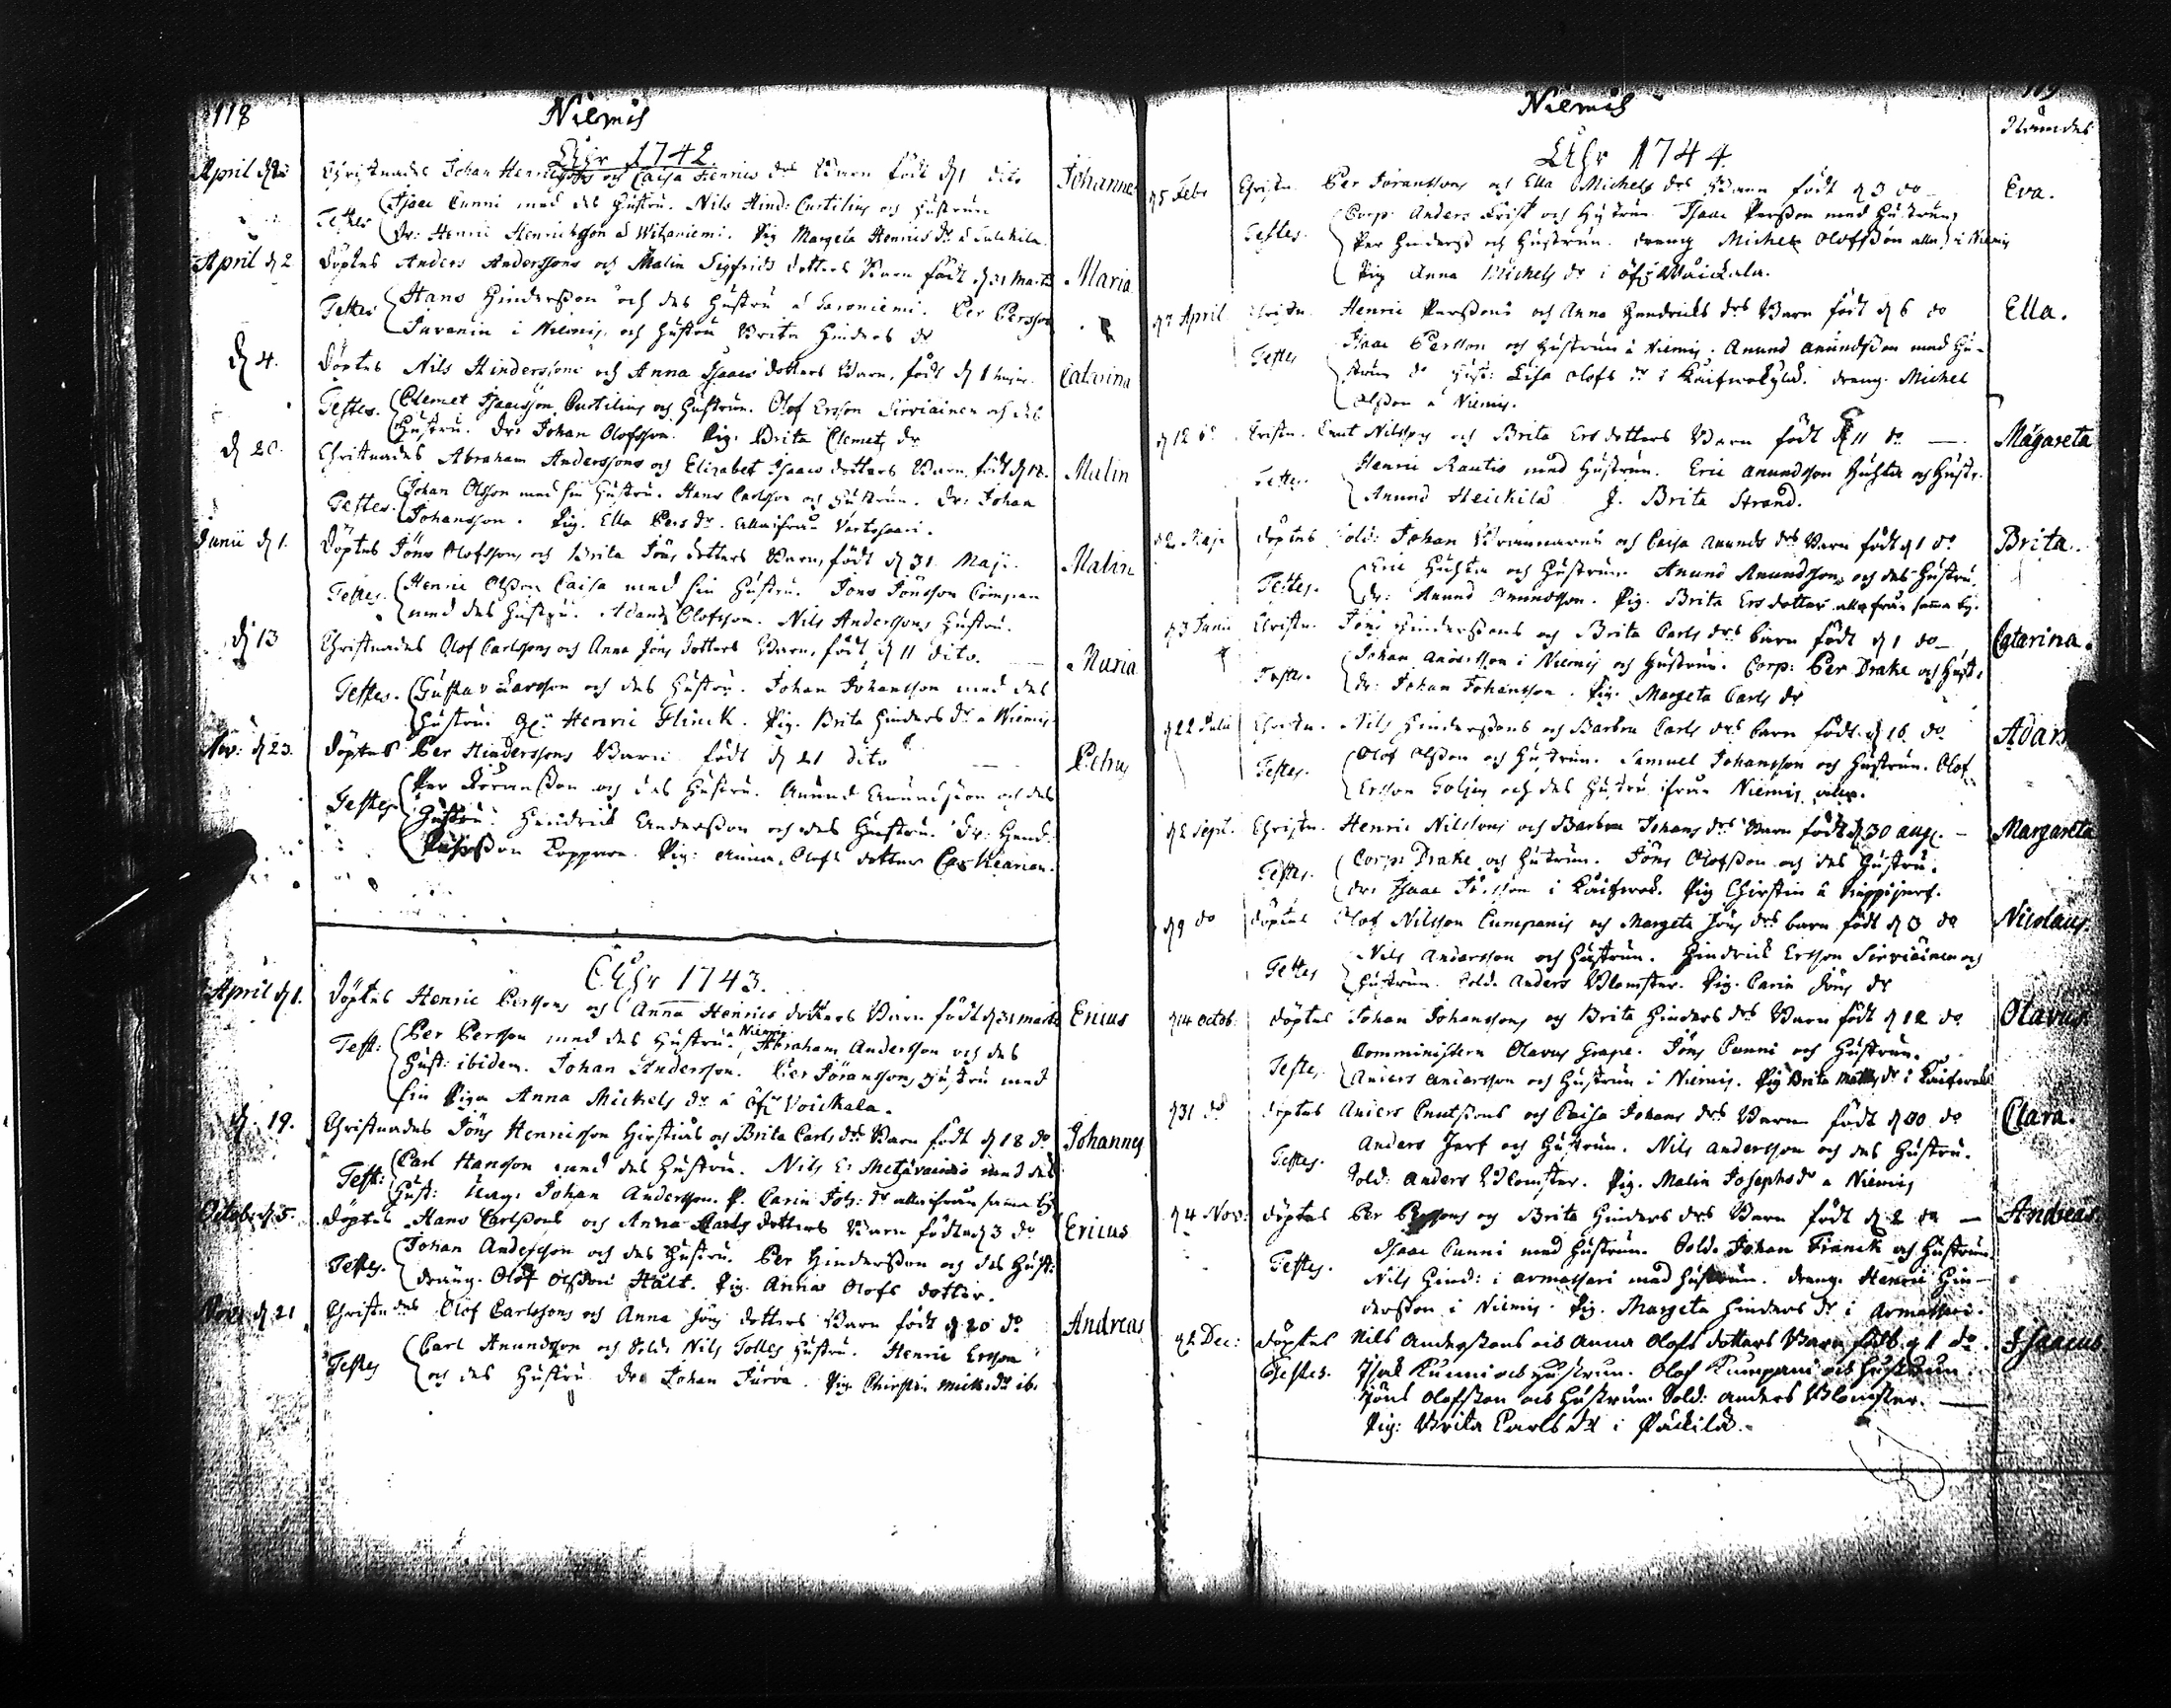 118
Niemis
Åhr 1742.
April d 2 Christnades Johan Henricssons och Caisa Henrics drs Barn födt d 1 dito Johannes
Testes Isaac Cunni med des Hustru. Nils Hind: Curtilius och Hustrun
dr: Henric Henricksson å Witsaniemi. Pig Margeta Henrics dr
April d 2 döptes Anders Anderssons och Malin Sigfrids dotters Barn födt d 31 Martii Maria
Testes Hans Hindersson och des Hustru å Karoniemi. Per Persson
Juvonin i Niemis, och Hustru Brita Hinders dr
d 4. döptes Nils Hinderssons och Anna Isaacs dotters Barn, födt d 1 hujus. Catarina
Testes. Clemet Isaacsson Curtilius och Hustrun. Olof Ersson Sirviainen och des
Hustru. dr: Johan Olofsson. Pig. Brita Clemets dr
d 20. Christnades Abraham Anderssons och Elizabet Isaacs dotters Barn, födt d 18. Malin
Testes. Johan Olsson med sin Hustru. Hans Carlsson och Hustrun. dr: Johan
Johansson. Pig. Ella Pers dr. alla ifrån Vartosaari.
Junii d 1. döptes Jöns Olofssons och Brita Jöns dotters Barn, födt d 31 Maji. Malin
Testes. Henric Olsson Caisa med sin Hustru. Jöns Jönsson Compan
med des Hustru. Adam Olofsson. Nils Anderssons Hustru.
d 13 Christnades Olof Carlssons och Anna Jöns dotters Barn, födt d 11 dito. Maria
Testes. Gustav Larsson och des Hustru. Johan Johansson med des
Hustru Henric Flinck. Pig. Brita Hinders dr å Niemis
Nov: d 23. döptes Per Hinderssons Barn födt d 21 dito Petrus
Testes Per Göransson och des Hustru. Anund Anundsson och des
Hustru. Hendrick Andersson och des Hustru. Dr: Hend.
Pig: Anna Olofs dotter
Åhr 1743.
April d 1. döptes Henric Perssons och Anna Henrics dotters Barn födt d 31 martii Ericus
Test: Per Persson med des Hustru å Niemis. Abraham Andersson och des
Hust: ibidem. Johan Andersson. Per Jöranssons Hustru med
sin Piga Anna Michels dr å öfr Voickala.
d. 19. Christnades Jöns Henricsson Hirstius och Brita Carls drs Barn födt d 18 do Johannes
Test: Carl Hansson med des Hustru. Nils Er: Metävainio med des
Hust: Ung: Johan Andersson. P. Carin Joh: dr alla ifrån samma by
Octob: d 5. döptes Hans Carlssons och Anna Carls dotters Barn födt d 3 do Ericus
Testes. Johan Andersson och des Hustru. Per Hindersson och des Hust:
dräng. Olof Olsson Hält. Pig. Anna Olofs dotter.
Nov: d 21 Christnades Olof Carlssons och Anna Jöns dotters Barn födt d 20 do Andreas
Testes Carl Anundsson och Sold: Nils Tolles Hustru. Henric Ersson
och des Hustru dr: Johan Jurva. Pig Chirstin Mickels dr ib.
119
Niemis
Åhr 1744.
d 5 Febr Christn. Per Jöranssons och Ella Michels drs Barn födt d 3 do Eva.
Testes. Corp. Anders Frisk och Hustrun. Isaac Persson med Hustrun,
Per Hinderss och Hustrun. dräng Michel Olofsson alla i Niemis
Pig Anna Michels dr i öfr Waickala.
d 7 April Christn. Henric Perssons och Anna Hendricks drs Barn födt d 6 do Ella.
Testes Isaac Persson och Hustrun i Niemis. Anund Anundsson med Hu-
strun Lisa Olofs dr i Kuifwakylä. dräng. Michel
Olsson å Niemis.
d 12 do Christn. Cnut Nilssons och Brita Ers dotters Barn födt d 11 do Magareta
Testes. Henric Rautio med Hustrun. Eric Anundsson Huhta och Hustr.
Anund Heickilä P. Brita Strand.
d 2 Maji döptes Sold: Johan Brännares och Caisa Anunds drs Barn födt d 1 do Brita.
Testes. Eric Huhta och Hustrun. Anund Anundsson och des Hustru.
dr: Anund Anundsson. Pig. Brita Ers dotter alla från samma by.
d 3 Junii Christn. Jöns Hinderssons och Brita Carls drs barn födt d 1 do Catarina.
Testes. Johan Andersson i Niemis och Hustrun. Corp: Per Drake och Hust:
dr: Johan Johansson. Pig. Margeta Carls dr
d 22 Julii Christn. Nils Hinderssons och Barbra Carls drs barn födt d 16 do Adam
Testes. Olof Olsson och Hustrun. Samuel Johansson och Hustrun. Olof
Ersson Toljus och des Hustru ifrån Niemis alla.
d 2 Sept. Christn. Henric Nilssons och Barbra Johans drs Barn födt d 30 aug. Margareta
Testes. Corp: Drake och Hustrun. Jöns Olofsson och des Hustru.
dr: Isaac i Kuifwak. Pig Chirstin å
d 9 do döptes Olof Nilsson Cumpanis och Margeta Jöns drs barn födt d 3 do Nicolaus.
Testes Nils Andersson och Hustrun. Hindrick Ersson Sirviainen och
Hustrun. Sold. Anders Blomster. Pig. Carin Jöns dr
d 14 Octob. döptes Johan Johanssons och Brita Hinders drs Barn födt d 12 do Olavus
Testes. Comministern Olavus Grape. Jöns Cunni och Hustrun.
Anders Andersson och Hustrun i Niemis. Pig Brita Matts dr i Kuifwak
d 31 do döptes Anders Cnutssons och Caisa Johans drs Barn födt d 30 do Clara.
Testes. Anders Jerf och Hustrun. Nils Andersson och des Hustru.
Sold: Anders Blomster. Pig. Malin Josephs dr å Niemis
d 4 Nov: döptes Per Perssons och Brita Hinders drs Barn födt d 2 do Andreas
Testes. Isaac Cunni med Hustrun. Sold. Johan Franck och Hustrun.
Nils Hind: i Armassari med Hustrun. dräng. Henric Hin-
dersson i Niemis. Pig. Margeta Hinders dr i Armassari.
d 2 Dec: döptes Nils Anderssons och Anna Olofs dotters Barn födt d 1 do Isaacus
Testes. Isak Kunni och Hustrun. Olof Kumpani och Hustrun.
Jöns Olofsson och Hustrun Sold: Anders Blomster.
Pig: Brita Carls dr i Päckilä.